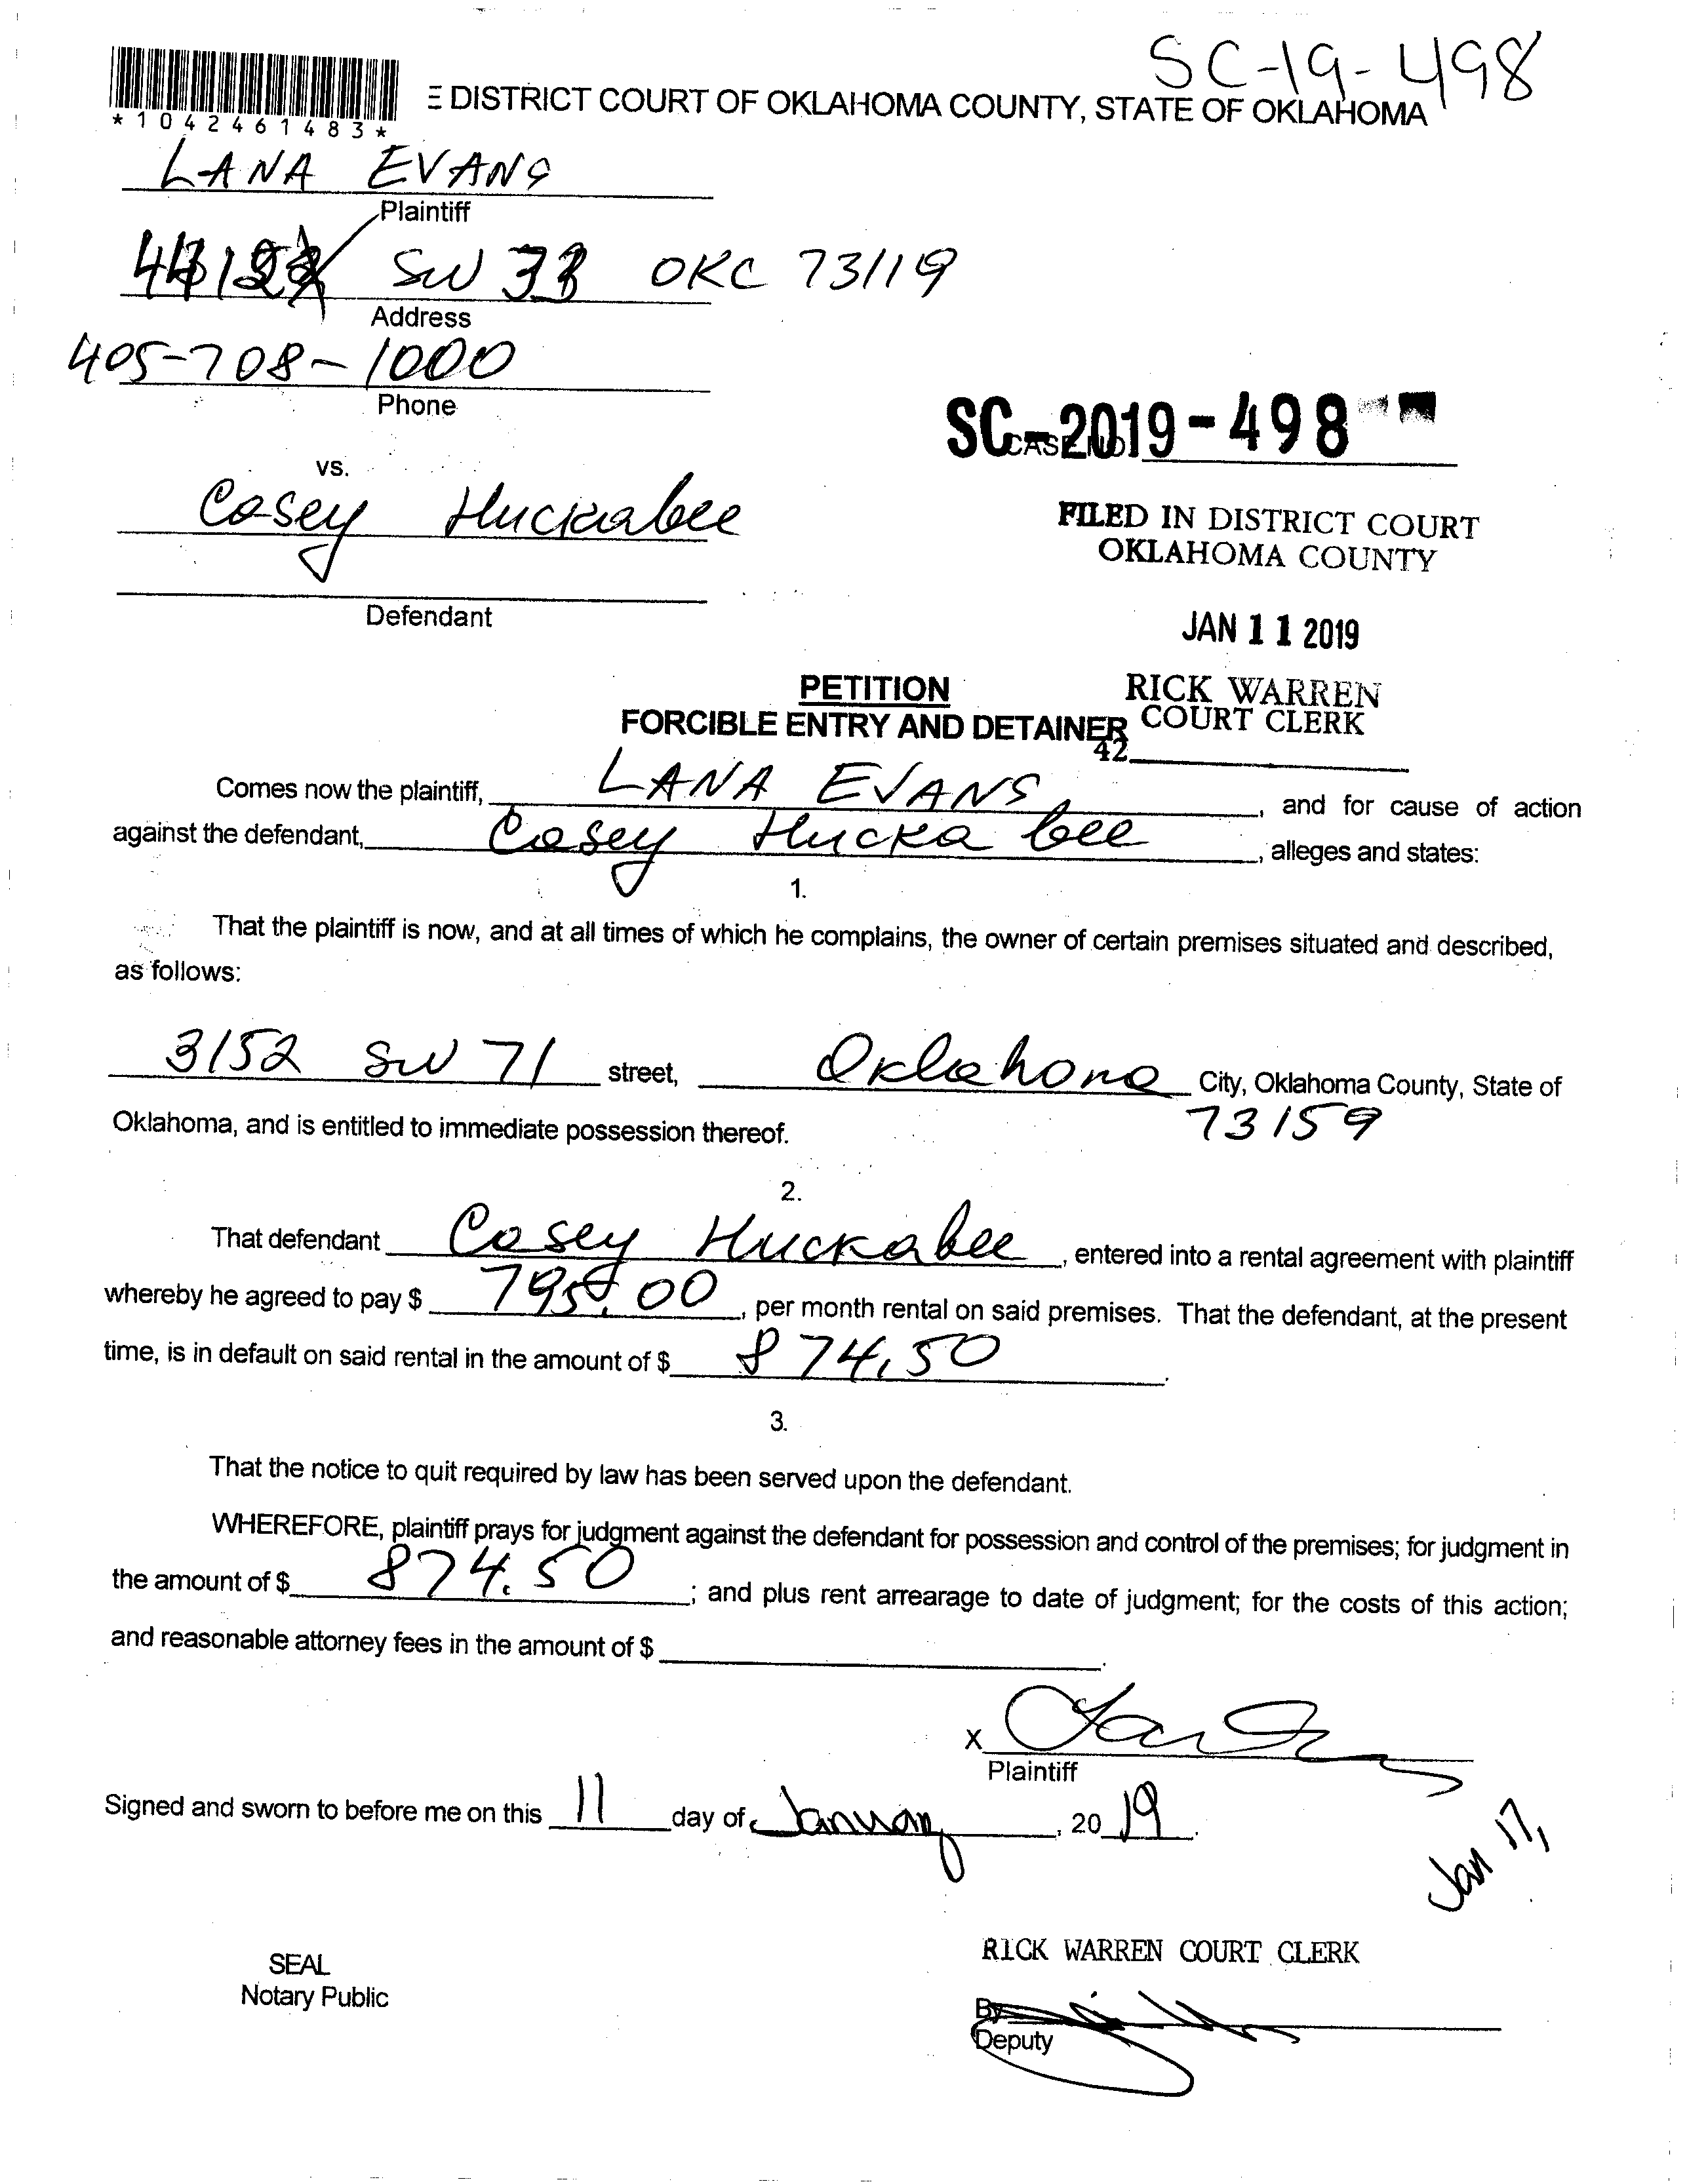 SC-19-498
*1042461483*
E DISTRICT COURT OF OKLAHOMA COUNTY, STATE OF OKLAHOMA
LANA EVANS
Plaintiff
SW 33 OKC 73119
Address
405-708-1000
Phone
SC-2019-498
CASE NO.
vs.
Casey Huckabee
FILED IN DISTRICT COURT
OKLAHOMA COUNTY
Defendant
JAN 11 2019
PETITION
RICK WARREN
FORCIBLE ENTRY AND DETAINER COURT CLERK
42
Comes now the plaintiff, LANA EVANS, and for cause of action
against the defendant, Casey Huckabee, alleges and states:
1.
That the plaintiff is now, and at all times of which he complains, the owner of certain premises situated and described,
as follows:
3152 SW 71 street, Oklahoma City, Oklahoma County, State of
Oklahoma, and is entitled to immediate possession thereof. 73159
2.
That defendant Casey Huckabee, entered into a rental agreement with plaintiff
whereby he agreed to pay $ 795.00, per month rental on said premises. That the defendant, at the present
time, is in default on said rental in the amount of $ 874.50.
3.
That the notice to quit required by law has been served upon the defendant.
WHEREFORE, plaintiff prays for judgment against the defendant for possession and control of the premises; for judgment in
the amount of $ 874.50; and plus rent arrearage to date of judgment; for the costs of this action;
and reasonable attorney fees in the amount of $ .
X
Plaintiff
Signed and sworn to before me on this 11 day of January, 2019.
Jan 17,
RICK WARREN COURT CLERK
SEAL
Notary Public
By
Deputy